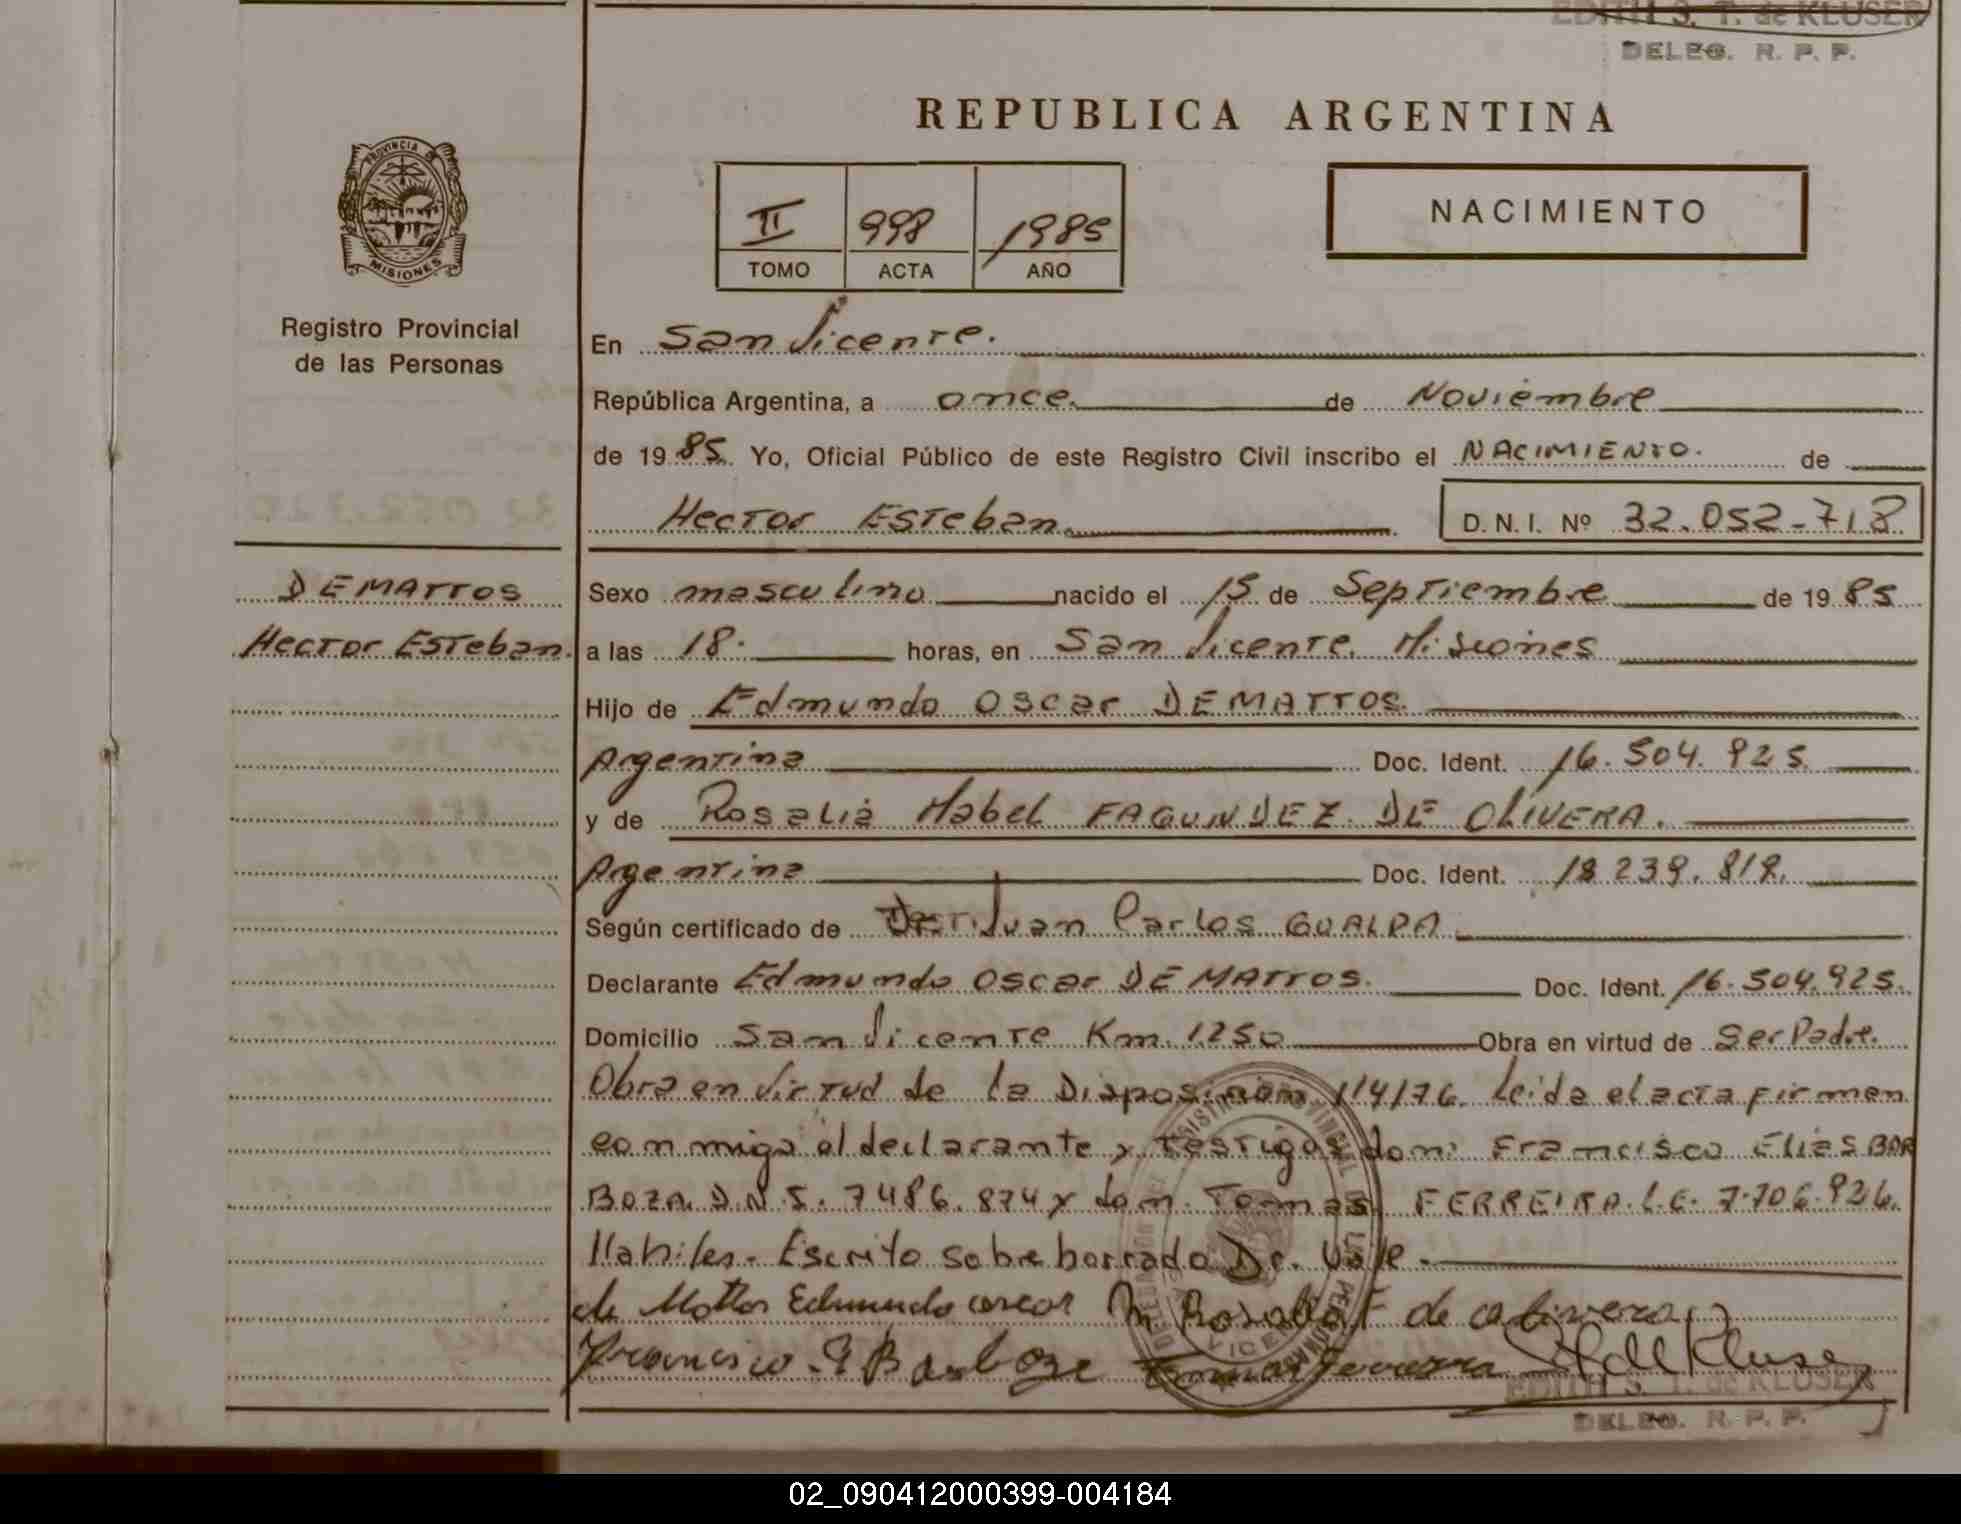 EDITH S. T. de KLUSER
DELEG. R. P. P.
REPUBLICA ARGENTINA
PROVINCIA DE
MISIONES
II 998 1985
TOMO ACTA AÑO
NACIMIENTO
Registro Provincial
de las Personas
En San Vicente.
República Argentina, a once de Noviembre
de 1985. Yo, Oficial Público de este Registro Civil inscribo el NACIMIENTO. de
Hector Esteban D.N.I. Nº 32.052.718
DEMATTOS
Hector Esteban.
Sexo masculino nacido el 15 de Septiembre de 1985
a las 18. horas, en San Vicente. Misiones
Hijo de Edmundo Oscar DEMATTOS.
Argentina Doc. Ident. 16.504.925.
y de Rosalia Mabel FAGUNDEZ DE OLIVERA.
Argentina Doc. Ident. 18 239.818.
Según certificado de Juan Carlos GUALDA
Declarante Edmundo Oscar DEMATTOS. Doc. Ident. 16.504.925.
Domicilio San Vicente Km. 1250 Obra en virtud de Ser Padre.
Obra en virtud de la Disposicion 114/76. Leida el acta firman
conmigo el declarante y testigos don: Francisco Elias BAR
BOZA. D.N.I. 7486.874 y don. Tomas FERREIRA. L.E. 7.706.926.
Habiles. Escrito sobre borrado Dr. Vale.
de Mattos Edmundo oscar M Rosalia F de olivera
Francisco E Barboze Tomas Ferreira
EDITH S. T. de KLUSER
DELEG. R. P. P.
02_090412000399-004184